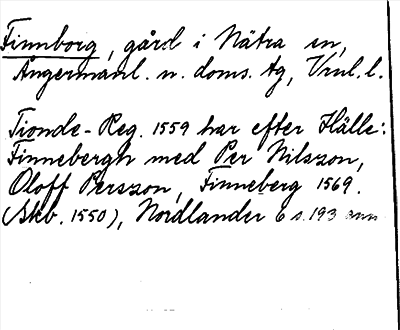 Finnborg, gård i Nätra sn,
Ångermanl. n. doms. tg, Vnrl. l.
Tionde-Reg. 1559 har efter Hälle:
Finnebergh med Per Nilszon,
Oloff Perszon, Finneberg 1569.
(Skb. 1550), Nordlander 6 s. 193 anm